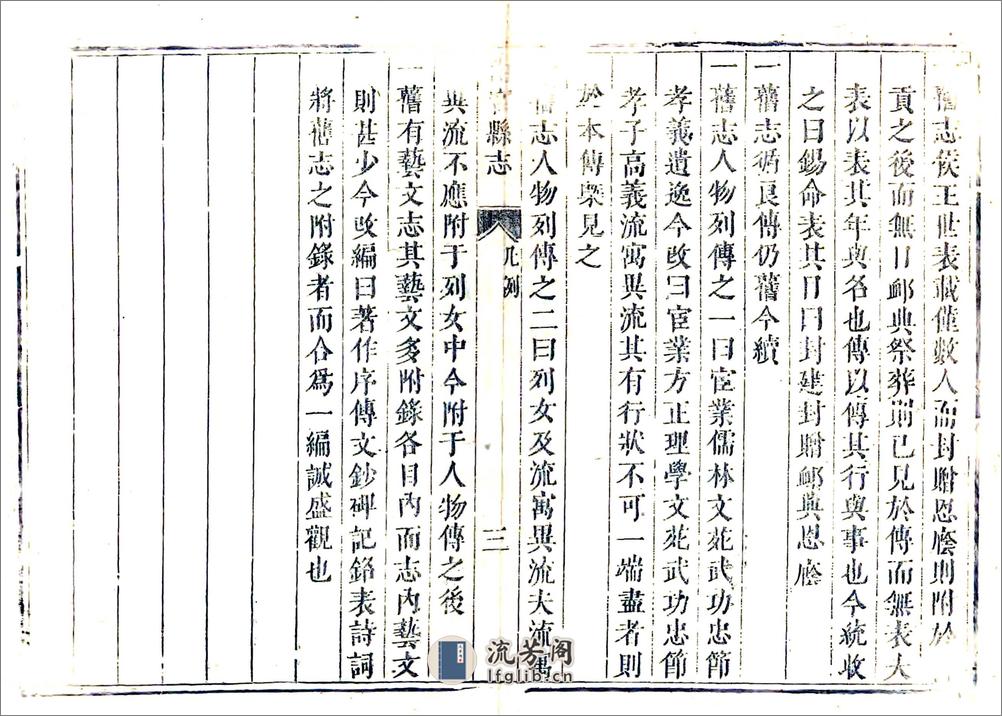 舊志侯王世表載僅數人而封贈恩廕則附於
貢之後而無目卹典祭葬則已見於傳而無表夫
表以表其年與名也傳以傳其行與事也今統收
之曰錫命表其目曰封建封贈卹典恩廕
一舊志循良傳仍舊今續
一舊志人物列傳之一曰宦業儒林文苑武功忠節
孝義遺逸今改曰宦業方正理學文苑武功忠節
孝子高義流寓異流其有行狀不可一端盡者則
於本傳槩見之
舊志人物列傳之二曰列女及流寓異流夫流寓
縣志
凡例
三
異流不應附于列女中今附于人物傳之後
一舊有藝文志其藝文多附錄各目內而志內藝文
則甚少今改編曰著作序傳文鈔碑記銘表詩詞
將舊志之附錄者而合爲一編誠盛觀也
流芳阁
lfglib.cn